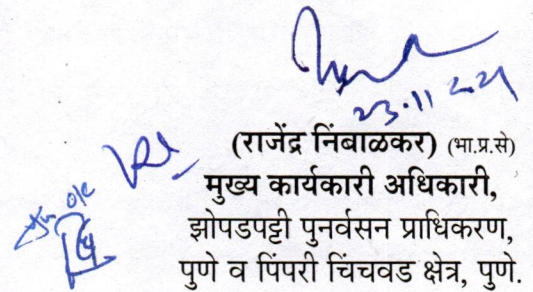 23.11.2021
(राजेंद्र निंबाळकर) (भा.प्र.से)
मुख्य कार्यकारी अधिकारी,
झोपडपट्टी पुनर्वसन प्राधिकरण,
पुणे व पिंपरी चिंचवड क्षेत्र, पुणे.